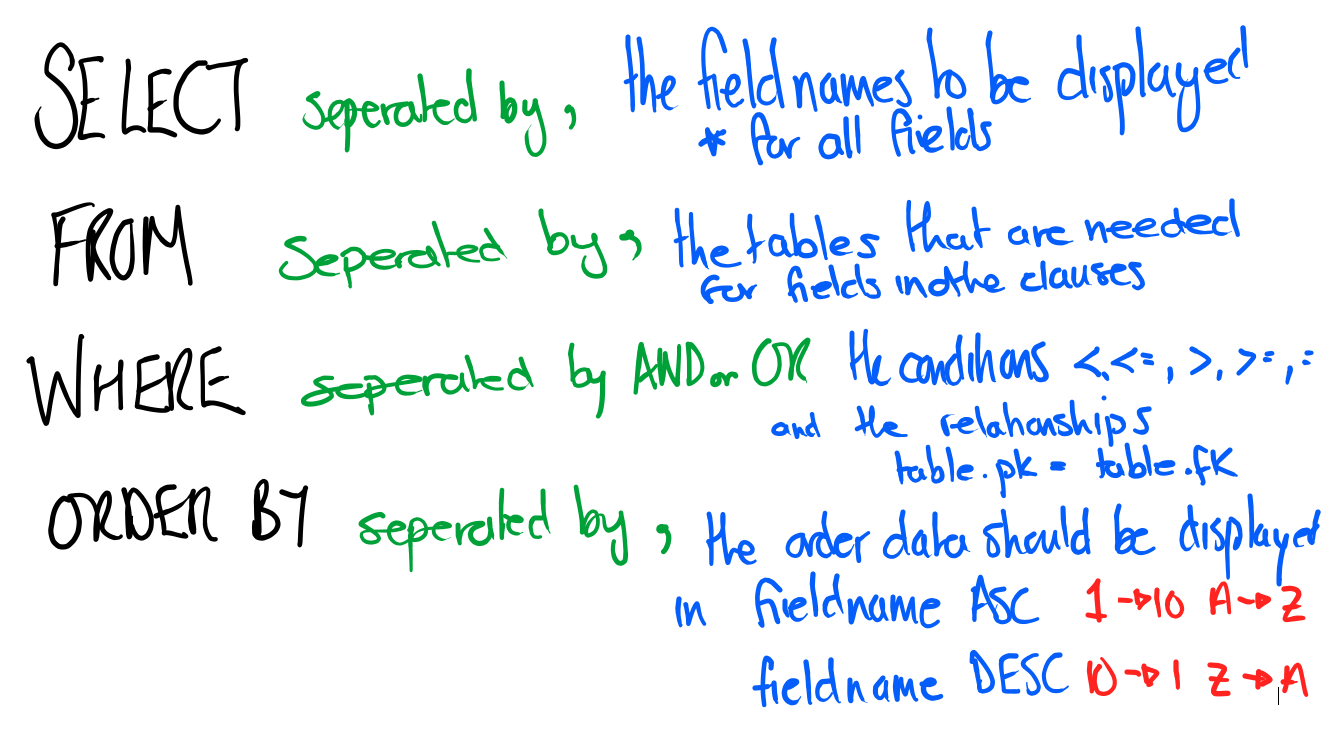 SELECT seperated by , the fieldnames to be displayed
* for all fields
FROM Seperated by , the tables that are needed
for fields in the clauses
WHERE seperated by AND or OR the conditions <, <=, >, >=, =
and the relationships
table.pk = table.fk
ORDER BY seperated by , the order data should be displayed
in fieldname ASC 1→10 A→Z
fieldname DESC 10→1 Z→A